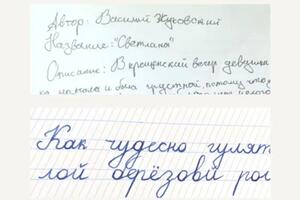 Автор: Василий Жуковский
Название: "Светлана"
Описание: В крещенский вечер девушки
и была грустной, потому что
Как чудесно гулят
лой берёзовй рощ